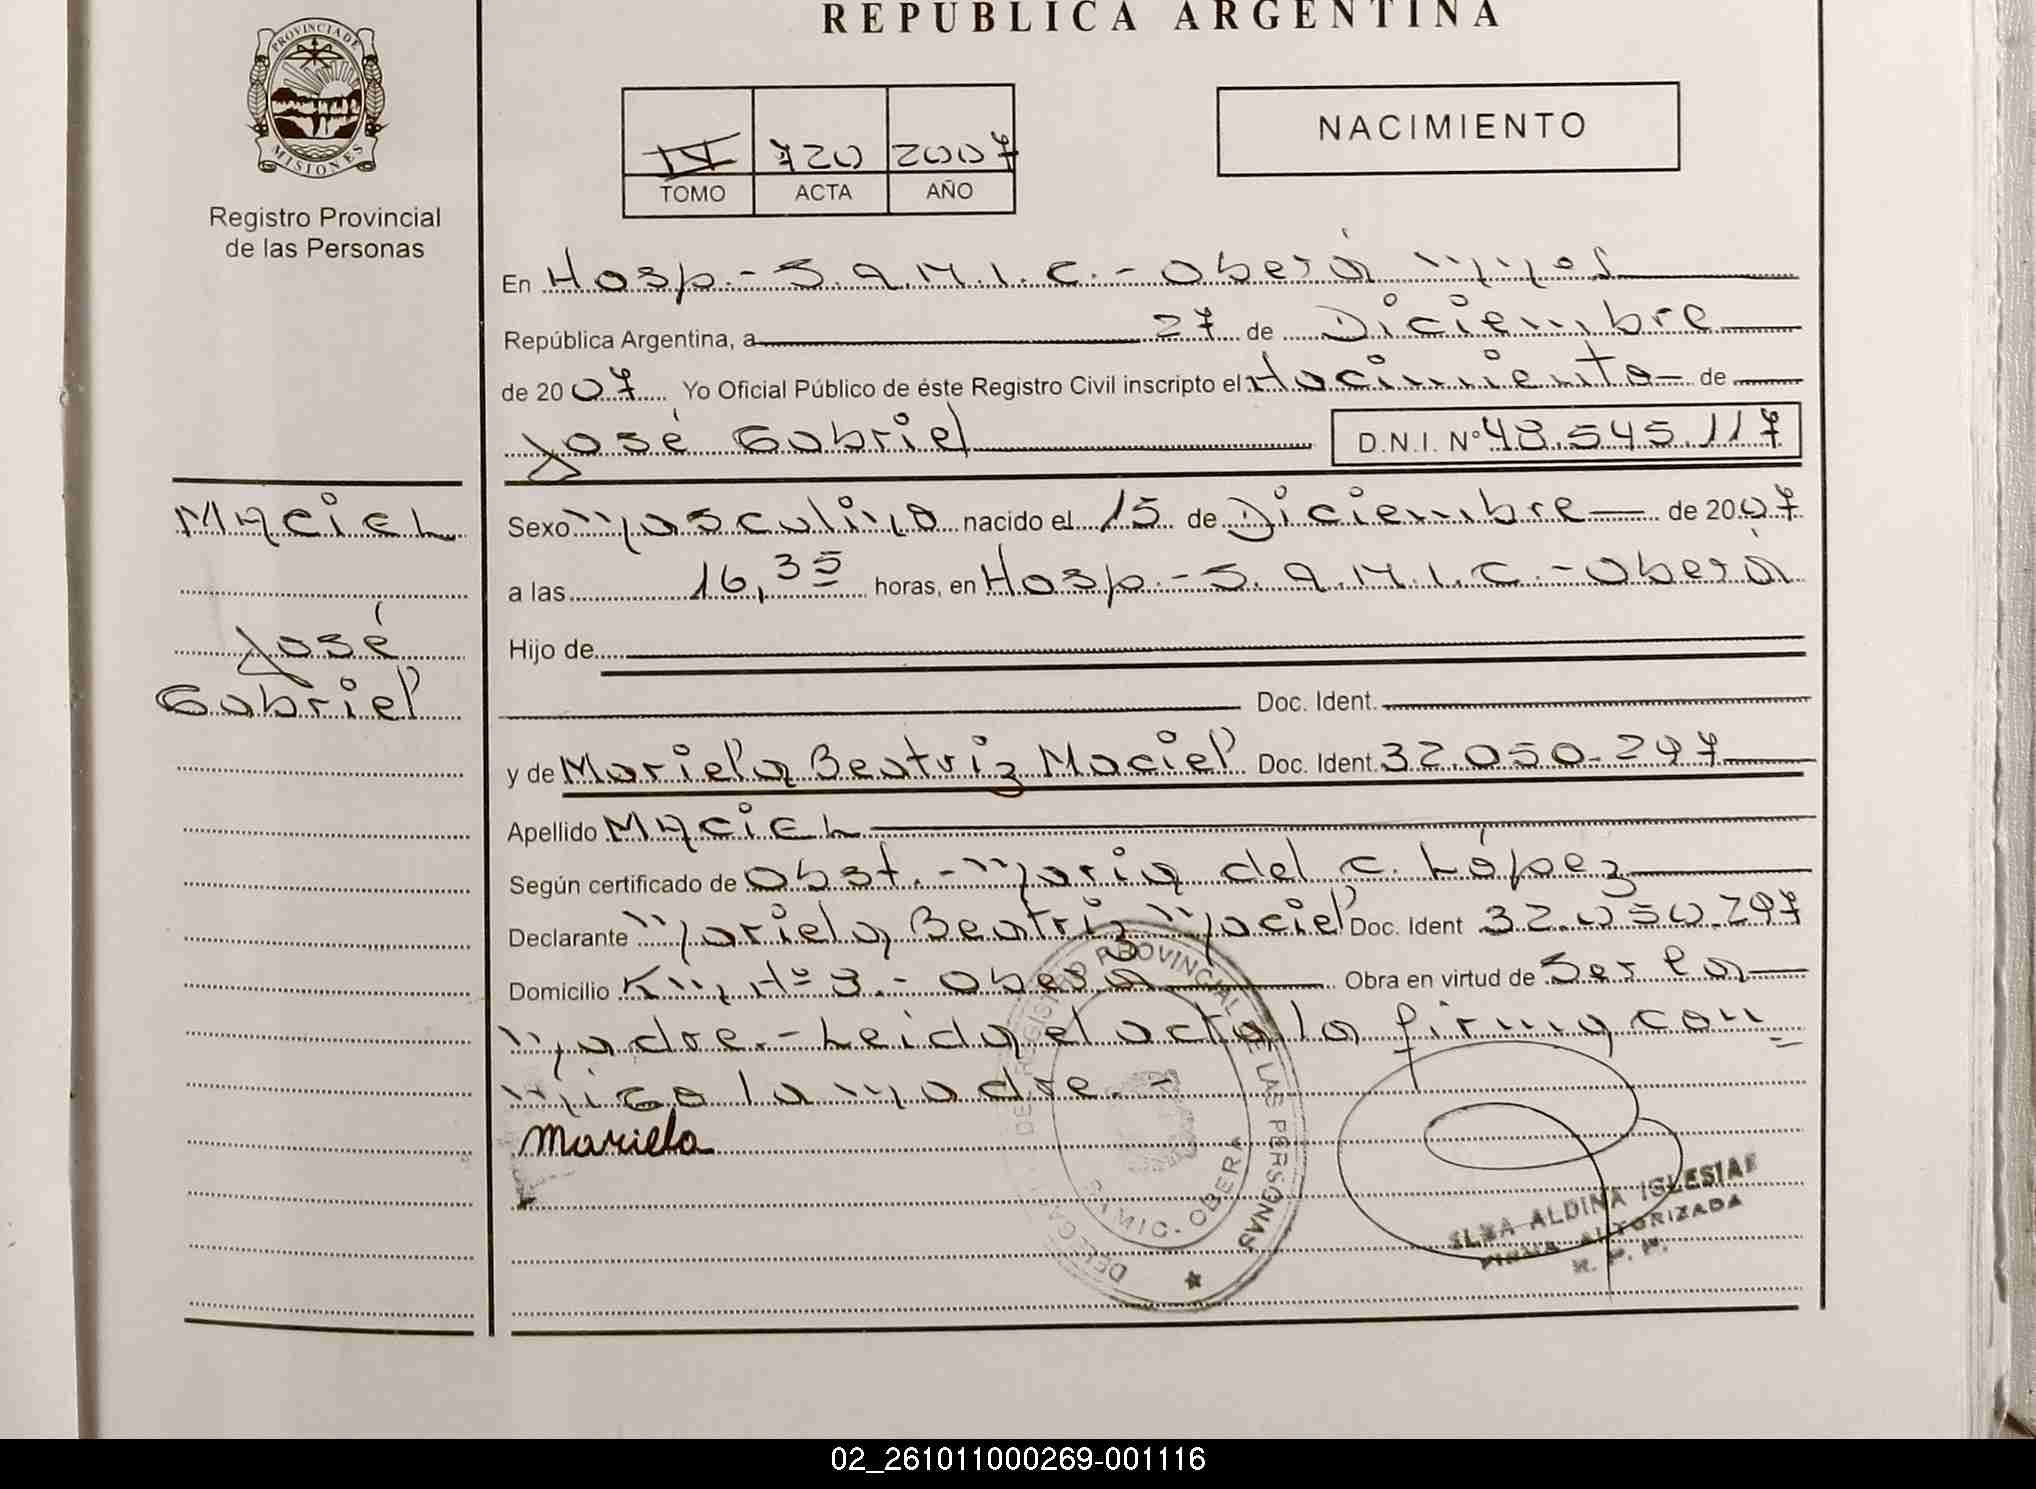 REPUBLICA ARGENTINA
PROVINCIA DE
MISIONES
Registro Provincial
de las Personas
NACIMIENTO
IV 720 2007
TOMO ACTA AÑO
En Hosp.- S.A.M.I.C.- Oberá Mnes
República Argentina, a 27 de Diciembre
de 2007 Yo Oficial Público de éste Registro Civil inscripto el Nacimiento de
José Gabriel D.N.I. Nº 48.545.117
MACIEL
José
Gabriel
Sexo Masculino nacido el 15 de Diciembre de 2007
a las 16,35 horas, en Hosp.- S.A.M.I.C.- Oberá
Hijo de
Doc. Ident.
y de Mariela Beatriz Maciel Doc. Ident. 32.050.297
Apellido MACIEL
Según certificado de Obst.- Maria del C. López
Declarante Mariela Beatriz Maciel Doc. Ident 32.050.297
Domicilio Km Nº 3.- Oberá Obra en virtud de Ser la
Madre.- Leida el acta la firma con
migo la madre.-
Mariela
REGISTRO PROVINCIAL DE LAS PERSONAS
SAMIC - OBERA
ELSA ALDINA IGLESIAS
FIRMA AUTORIZADA
R. P. P.
02_261011000269-001116